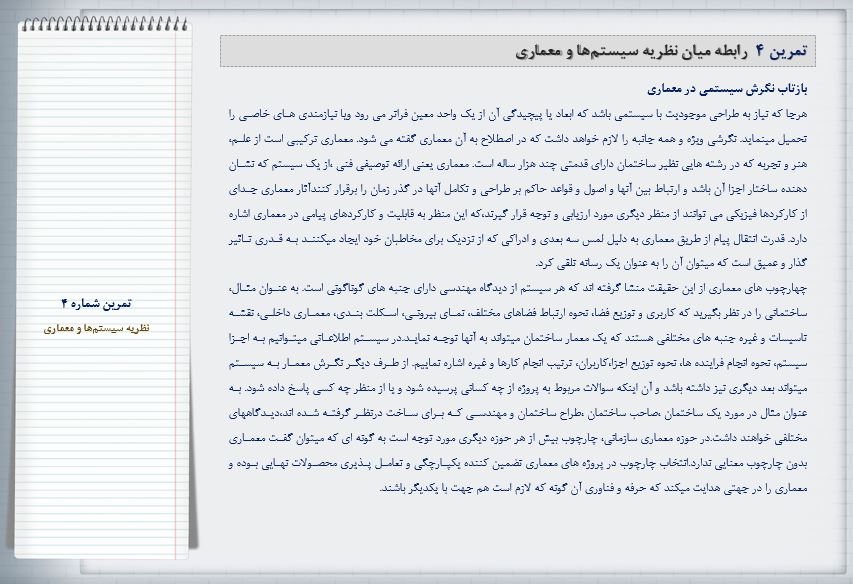 تمرین ۴ رابطه میان نظریه سیستم‌ها و معماری
بازتاب نگرش سیستمی در معماری
هرجا که نیاز به طراحی موجودیت یا سیستمی باشد که ابعاد یا پیچیدگی آن از یک واحد معین فراتر می رود ویا نیازمندی های خاصی را
تحمیل مینماید. نگرشی ویژه و همه جانبه را لازم خواهد داشت که در اصطلاح به آن معماری گفته می شود. معماری ترکیبی است از علم،
هنر و تجربه که در رشته هایی نظیر ساختمان دارای قدمتی چند هزار ساله است. معماری یعنی ارائه توصیفی فنی ،از یک سیستم که نشان
دهنده ساختار اجزا آن باشد و ارتباط بین آنها و اصول و قواعد حاکم بر طراحی و تکامل آنها در گذر زمان را برقرار کنندآثار معماری جدای
از کارکردها فیزیکی می توانند از منظر دیگری مورد ارزیابی و توجه قرار گیرند،که این منظر به قابلیت و کارکردهای پیامی در معماری اشاره
دارد. قدرت انتقال پیام از طریق معماری به دلیل لمس سه بعدی و ادراکی که از نزدیک برای مخاطبان خود ایجاد میکنند به قدری تاثیر
گذار و عمیق است که میتوان آن را به عنوان یک رسانه تلقی کرد.
چهارچوب های معماری از این حقیقت منشا گرفته اند که هر سیستم از دیدگاه مهندسی دارای جنبه های گوناگونی است. به عنوان مثال،
ساختمانی را در نظر بگیرید که کاربری و توزیع فضا، نحوه ارتباط فضاهای مختلف، نمای بیرونی، اسکلت بندی، معماری داخلی، نقشه
تاسیسات و غیره جنبه های مختلفی هستند که یک معمار ساختمان میتواند به آنها توجه نماید.در سیستم اطلاعاتی میتوانیم به اجزا
سیستم، نحوه انجام فرایند ها، نحوه توزیع اجزا،کاربران، ترتیب انجام کارها و غیره اشاره نماییم. از طرف دیگر نگرش معمار به سیستم
میتواند بعد دیگری نیز داشته باشد و آن اینکه سوالات مربوط به پروژه از چه کسانی پرسیده شود و یا از منظر چه کسی پاسخ داده شود. به
عنوان مثال در مورد یک ساختمان ،صاحب ساختمان ،طراح ساختمان و مهندسی که برای ساخت درنظر گرفته شده اند،دیدگاههای
مختلفی خواهند داشت.در حوزه معماری سازمانی، چارچوب بیش از هر حوزه دیگری مورد توجه است به گونه ای که میتوان گفت معماری
بدون چارچوب معنایی ندارد.انتخاب چارچوب در پروژه های معماری تضمین کننده یکپارچگی و تعامل پذیری محصولات نهایی بوده و
معماری را در جهتی هدایت میکند که حرفه و فناوری آن گونه که لازم است هم جهت با یکدیگر باشند.
تمرین شماره ۴
نظریه سیستم‌ها و معماری